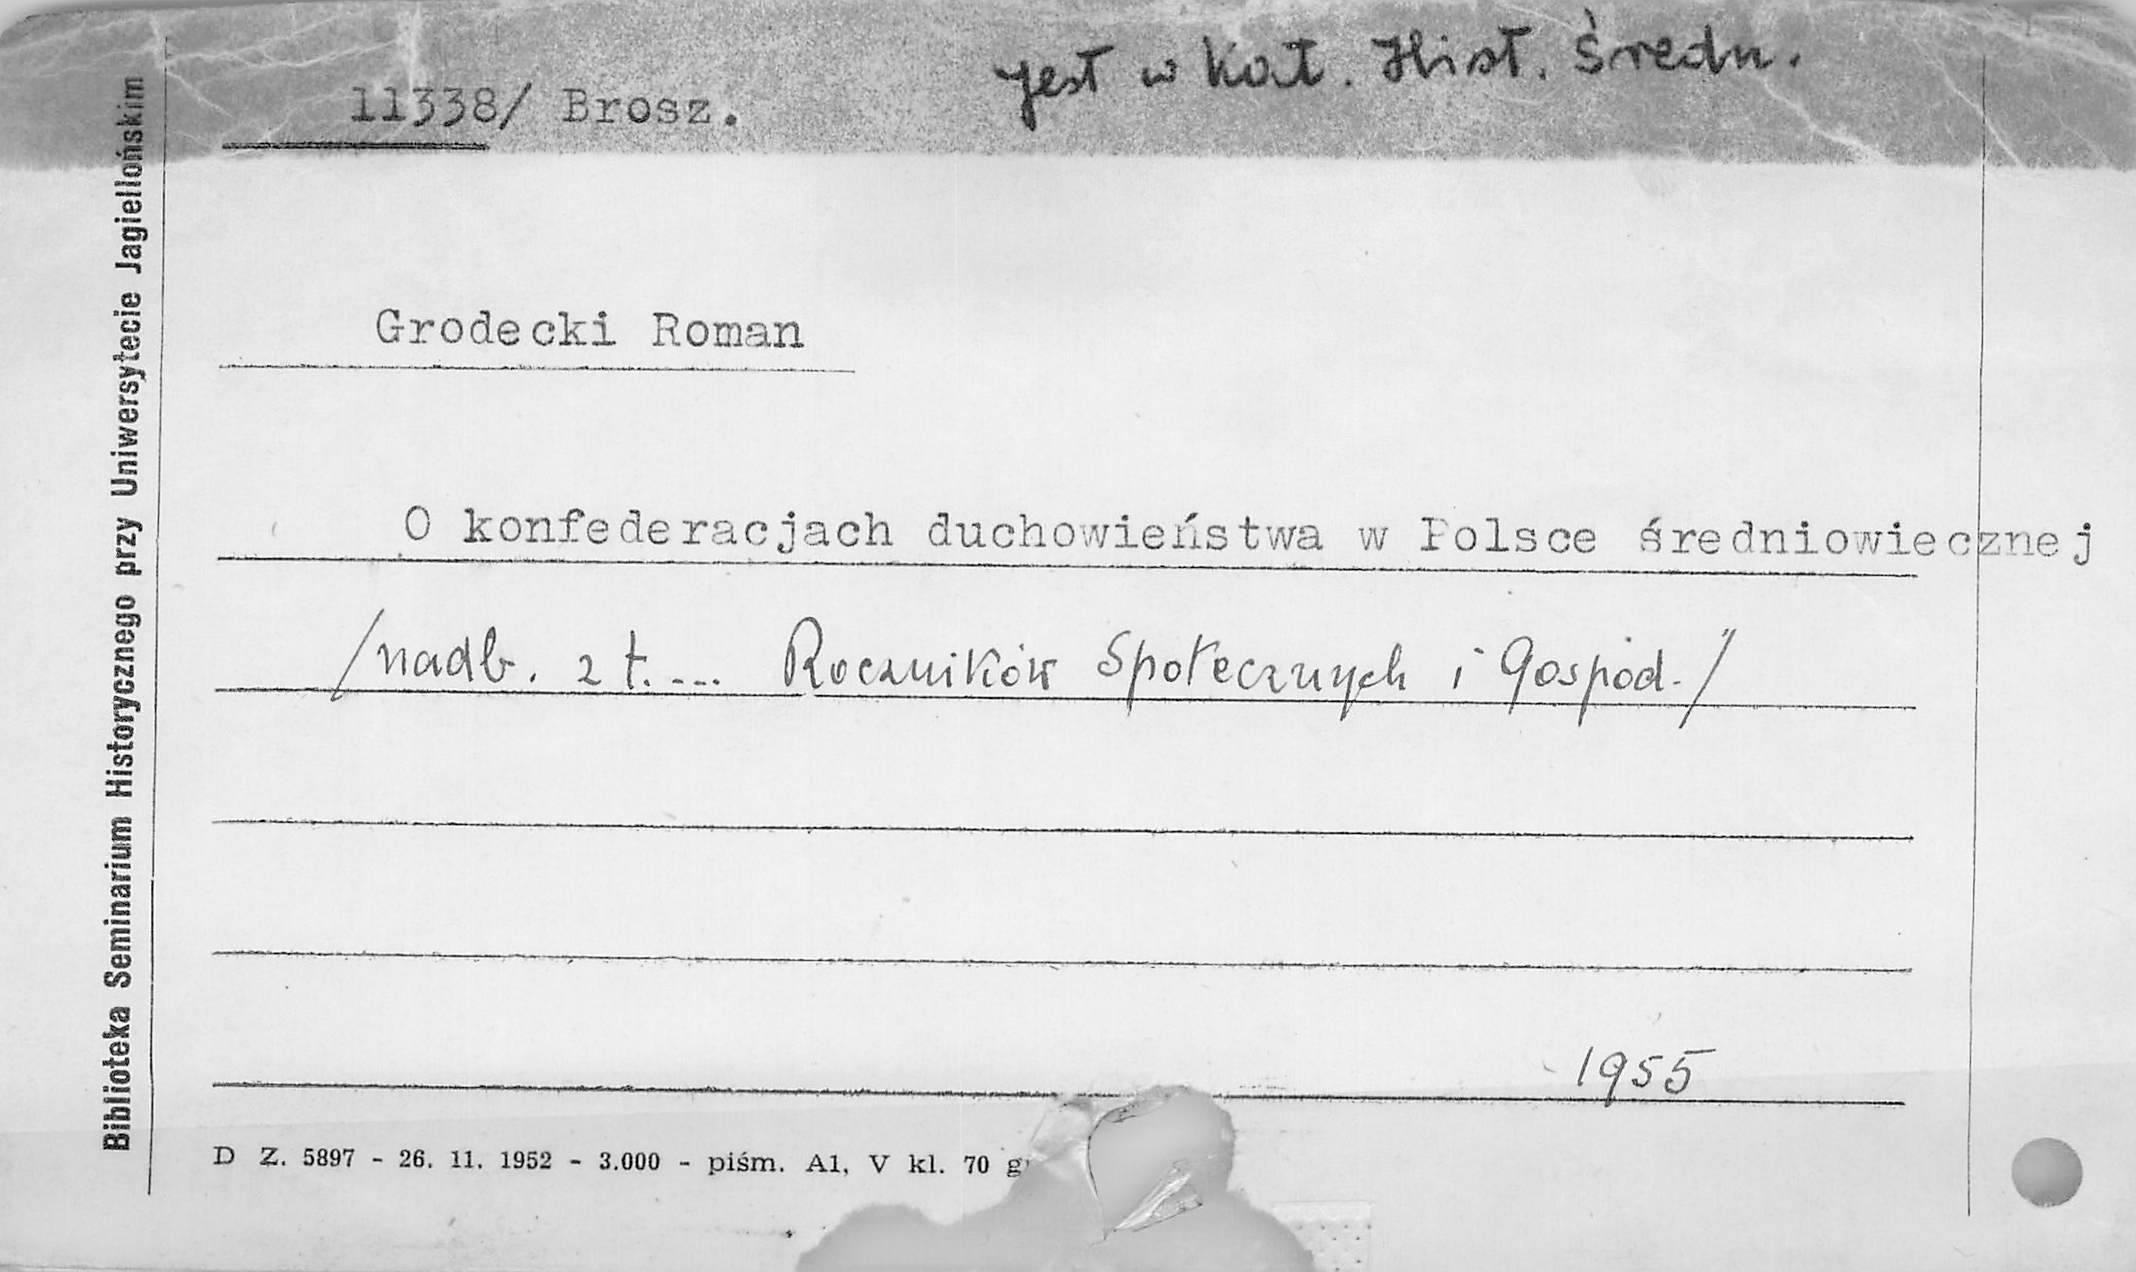 jest w Kat. Hist. Średn.
11338/ Brosz.
Biblioteka Seminarium Historycznego przy Uniwersytecie Jagiellońskim
Grodecki Roman
O konfederacjach duchowieństwa w Polsce średniowiecznej
/nadb. z t. ... Roczników Społecznych i Gospod./
1955
D Z. 5897 - 26. 11. 1952 - 3.000 - piśm. A1, V kl. 70